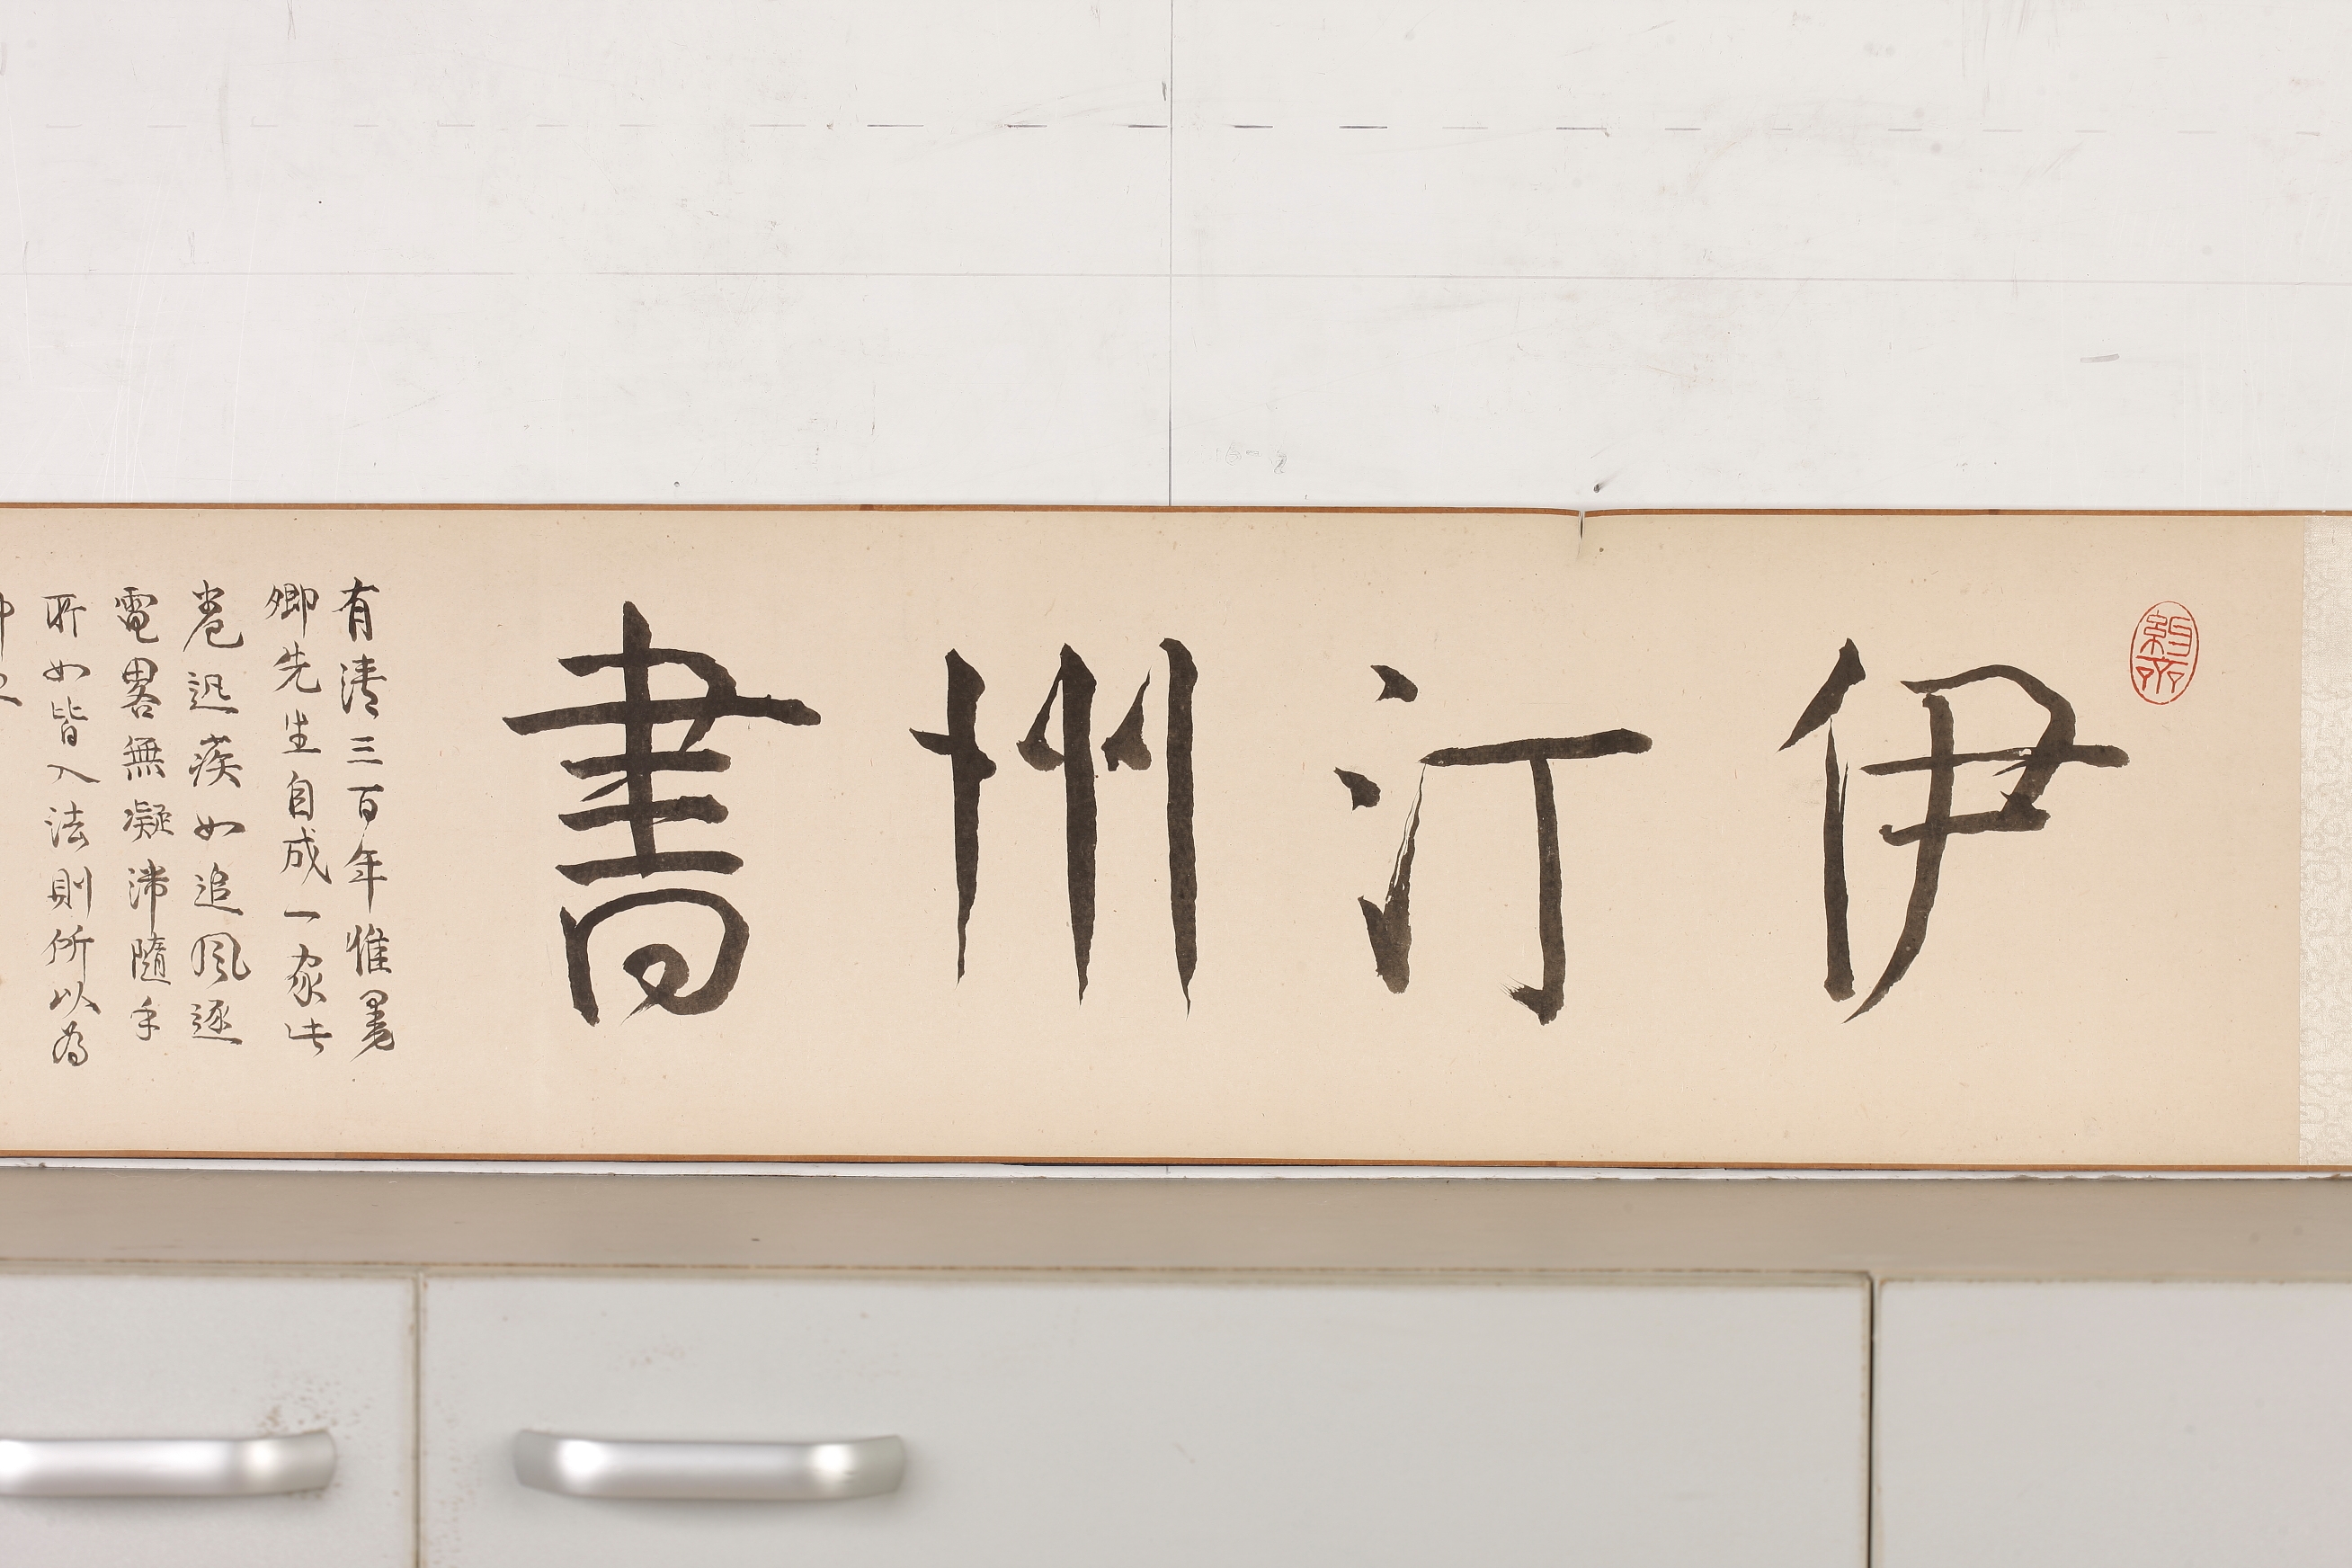 伊汀州書
有清三百年惟墨
卿先生自成一家此
卷迅疾如追風逐
電畧無凝滯隨手
所如皆入法則所以為